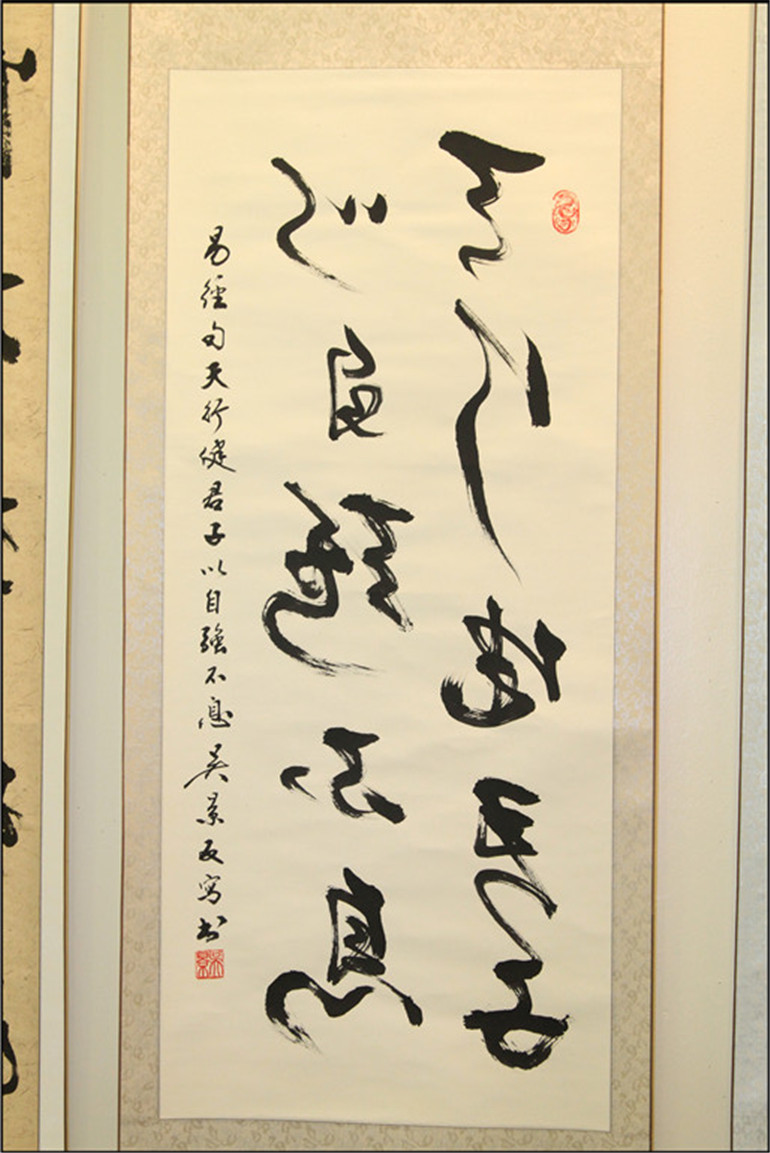 天行健君子
以自強不息
易經句天行健君子以自強不息吳景寫书